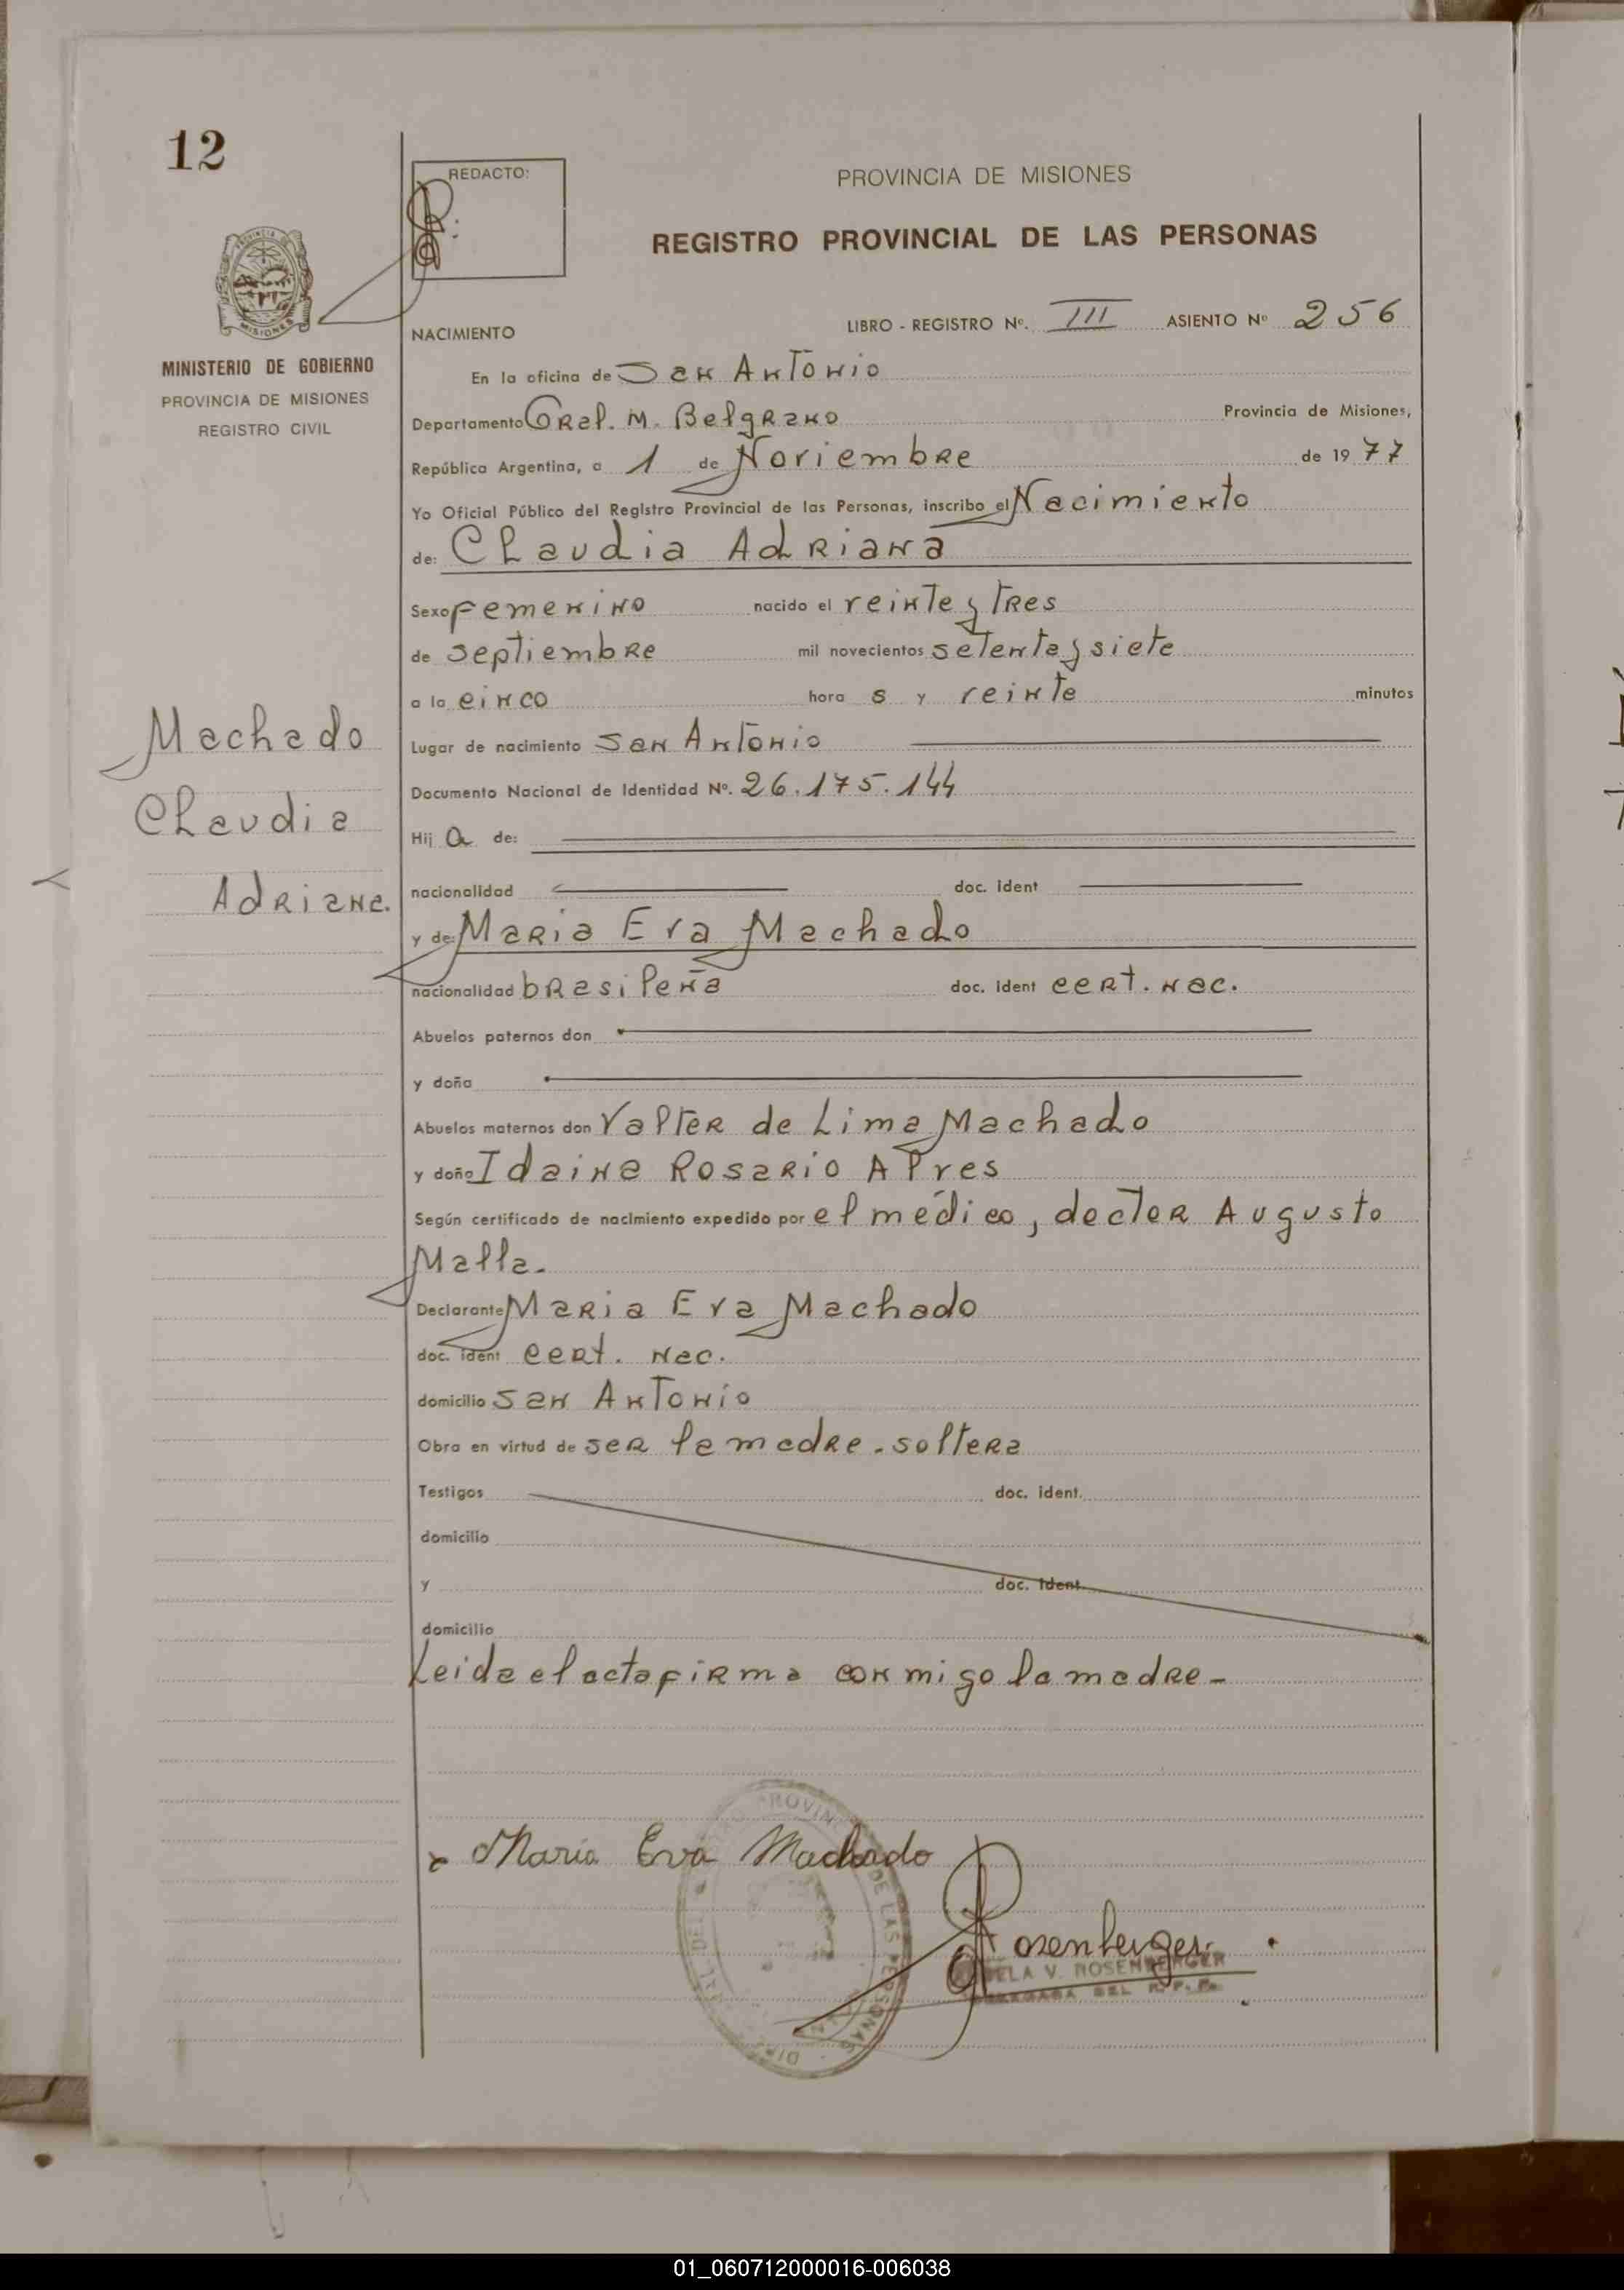 12
REDACTO:
PROVINCIA DE MISIONES
REGISTRO PROVINCIAL DE LAS PERSONAS
MINISTERIO DE GOBIERNO
PROVINCIA DE MISIONES
REGISTRO CIVIL
NACIMIENTO LIBRO - REGISTRO Nº. III ASIENTO Nº 256
En la oficina de San Antonio
Departamento Gral. M. Belgrano Provincia de Misiones,
República Argentina, a 1 de Noviembre de 1977
Yo Oficial Público del Registro Provincial de las Personas, inscribo el Nacimiento
de: Claudia Adriana
Sexo femenino nacido el veinte y tres
de septiembre mil novecientos setenta y siete
a la cinco hora s y veinte minutos
Machado
Claudia
Adriana.
Lugar de nacimiento San Antonio
Documento Nacional de Identidad Nº. 26.175.144
Hij a de:
nacionalidad doc. ident
y de: Maria Eva Machado
nacionalidad brasileña doc. ident cert. nac.
Abuelos paternos don
y doña
Abuelos maternos don Valter de Lima Machado
y doña Idaina Rosario Alves
Según certificado de nacimiento expedido por el médico, doctor Augusto
Malla.
Declarante Maria Eva Machado
doc. ident cert. nac.
domicilio San Antonio
Obra en virtud de ser la madre. soltera
Testigos doc. ident.
domicilio
y doc. ident.
domicilio
Leida el acta firma conmigo la madre -
Maria Eva Machado
Rosenberger
V. ROSENBERGER
DEL R.P.P.
01_060712000016-006038